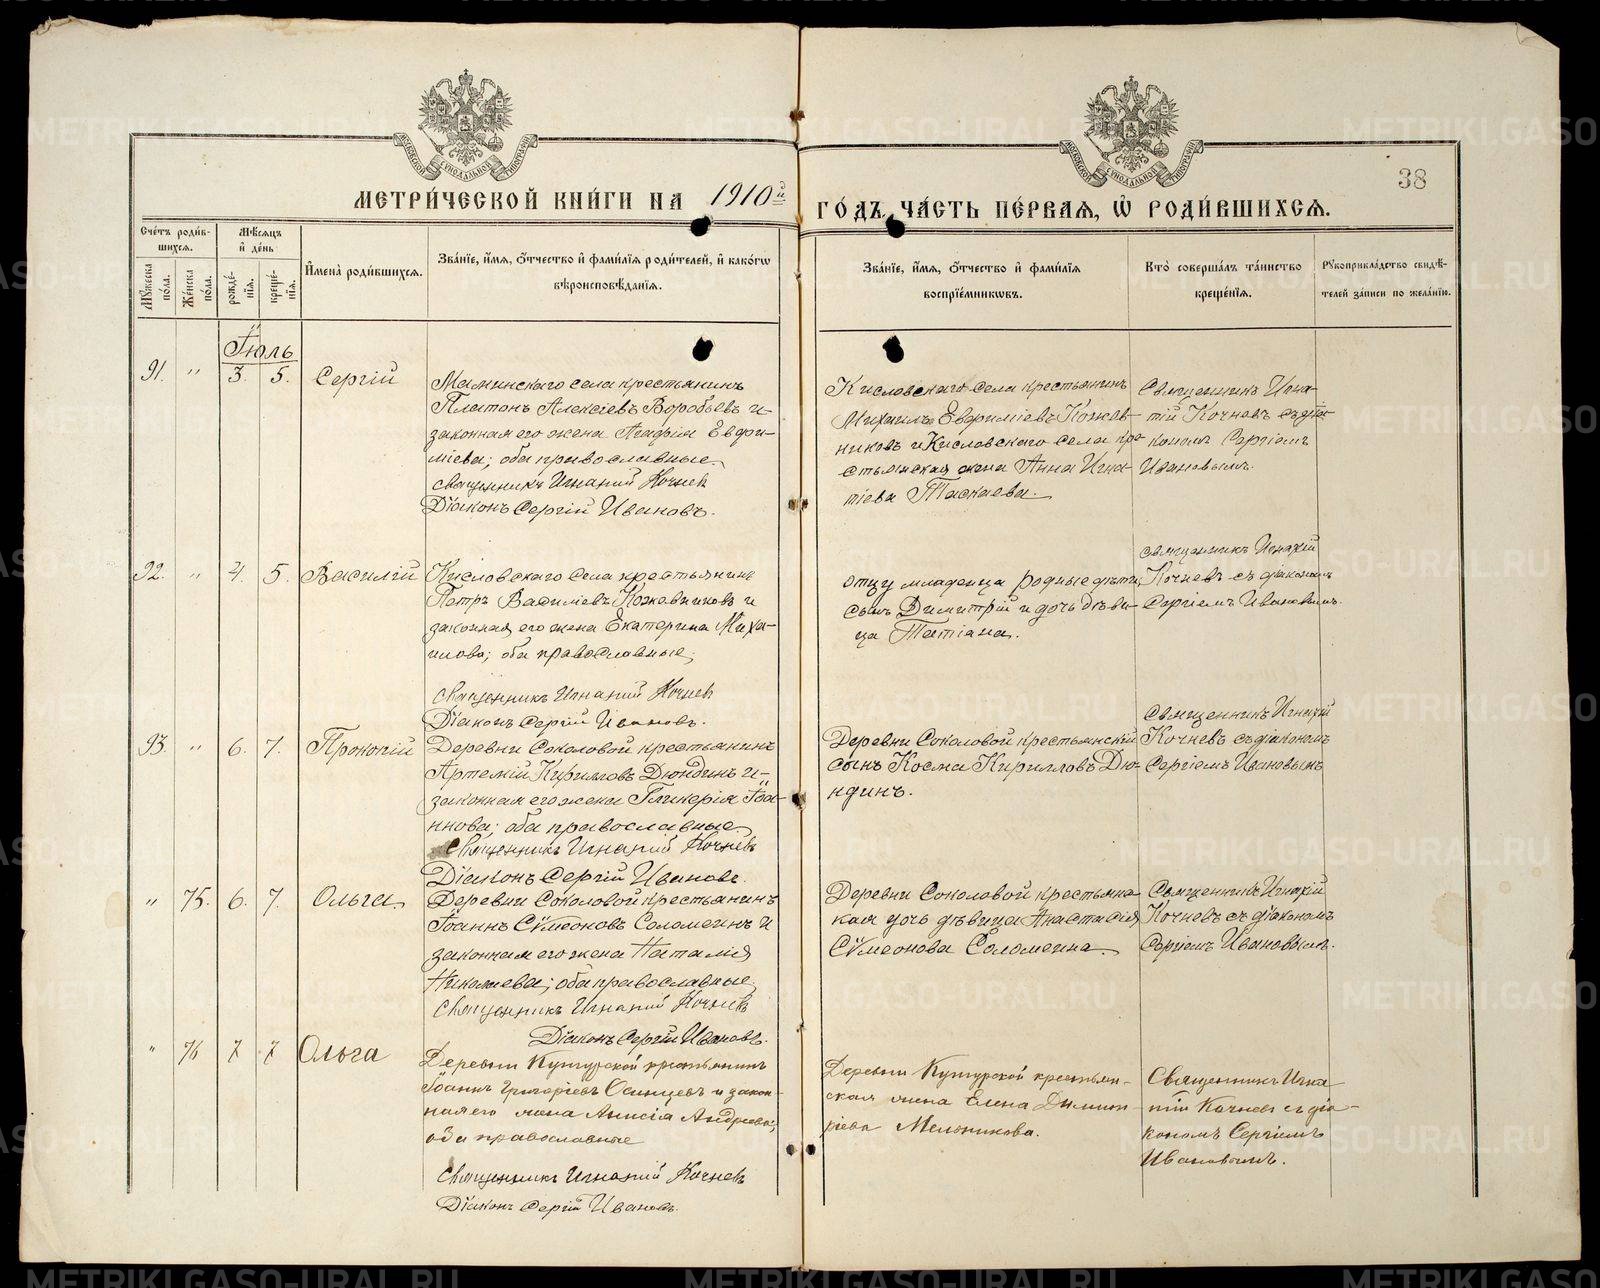 38
МЕТРИ́ЧЕСКОЙ КНИ́ГИ НА 1910й ГО́ДЪ, ЧА́СТЬ ПЕ́РВАЯ, Ѡ РОДИ́ВШИХСЯ.
Сче́тъ роди́вшихся.
Мꙋ́жеска по́ла.
Же́нска по́ла.
Мѣ́сяцъ и де́нь
рожде́нїя.
креще́нїя.
Имена̀ роди́вшихся.
Зва́нїе, и́мя, о́тчество и фами́лїя роди́телей, и како́гѡ
вѣроисповѣ́данїя.
Зва́нїе, и́мя, о́тчество и фами́лїя
воспрїе́мникѡвъ.
Кто̀ соверша́лъ та́инство
креще́нїя.
Рꙋкоприкла́дство свидѣ́-
телей за́писи по жела́нїю.
Іюль
91. " 3. 5. Сергій
Маминскаго села крестьянинъ
Платонъ Алексіевъ Воробьевъ и
законная его жена Агафія Евфи-
міева; оба православные.
Священникъ Игнатій Кочневъ
Діаконъ Сергій Ивановъ.
Кисловскаго села крестьянинъ
Михаилъ Евфиміевъ Кожев-
никовъ и Кисловскаго села кре-
стьянская жена Анна Игна-
тіева Таскаева.
Священникъ Игна-
тій Кочневъ съ діа-
кономъ Сергіемъ
Ивановымъ.
92. " 4. 5. Василій
Кисловскаго села крестьянинъ
Петръ Василіевъ Кожевниковъ и
законная его жена Екатерина Миха-
илова; оба православные;
Священникъ Игнатій Кочневъ
Діаконъ Сергій Ивановъ.
Отцу младенца родные дѣти
сынъ Димитрій и дочь дѣви-
ца Татіана.
Священникъ Игнатій
Кочневъ съ діакономъ
Сергіемъ Ивановымъ.
93. " 6. 7. Прокопій
Деревни Соколовой крестьянинъ
Артемій Кирилловъ Дюндинъ и
законная его жена Гликерія Іоа-
ннова; оба православные.
Священникъ Игнатій Кочневъ
Діаконъ Сергій Ивановъ.
Деревни Соколовой крестьянскій
сынъ Косма Кирилловъ Дю-
ндинъ.
Священникъ Игнатій
Кочневъ съ діакономъ
Сергіемъ Ивановымъ
" 75. 6. 7. Ольга.
Деревни Соколовой крестьянинъ
Іоаннъ Сѵмеоновъ Соломеинъ и
законная его жена Наталія
Николаева; оба православные;
Священникъ Игнатій Кочневъ
Діаконъ Сергій Ивановъ.
Деревни Соколовой крестьянс
кая дочь дѣвица Анастасія
Сѵмеонова Соломеина.
Священникъ Игнатій
Кочневъ съ діакономъ
Сергіемъ Ивановымъ.
" 76 7 7 Ольга
Деревни Кунгурской крестьянинъ
Іоаннъ Григоріевъ Осинцевъ и закон-
ная его жена Анисія Андреева;
оба православные
Священникъ Игнатій Кочневъ
Діаконъ Сергій Ивановъ.
Деревни Кунгурской крестьян-
ская жена Елена Димит-
ріева Мельникова.
Священникъ Игна
тій Кочневъ съ діа-
кономъ Сергіемъ
Ивановымъ.
METRIKI.GASO-URAL.RU